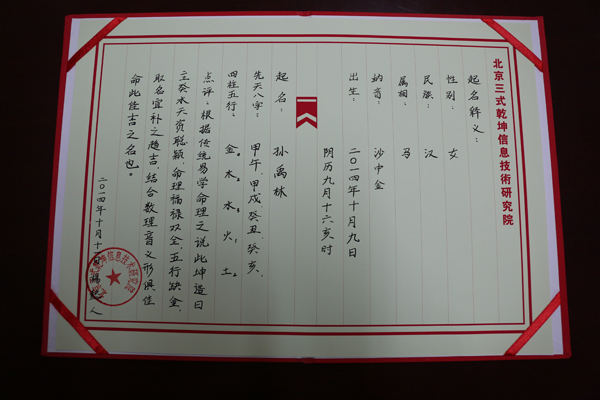 北京三式乾坤信息技術研究院
起名释义：
性别： 女
民族： 汉
属相： 马
纳音： 沙中金
出生： 二〇一四年十月九日
阴历九月十六亥时
起名： 孙禹林
先天八字： 甲午、甲戌、癸丑、癸亥、
四柱五行： 金0 木2 水3 火1 土2
点评：根据传统易学命理之说此坤造日
主癸水天资聪颖，命理福禄双全，五行缺金，
取名宜补之趋吉，结合数理音义形俱佳
命此佳吉之名也。
二〇一四年十月十